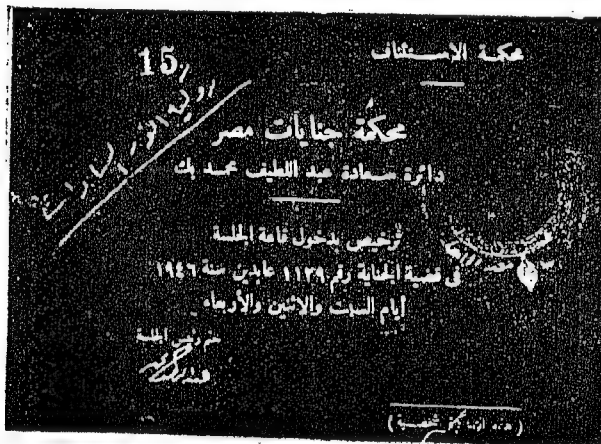 محكمة الاستئناف
15
محكمة جنايات مصر
دائرة سعادة عبد اللطيف محمد بك
ترخيص بدخول قاعة الجلسة
فى قضية الجناية رقم ١١٣٩ عابدين سنة ١٩٤٦
أيام السبت والاثنين والأربعاء
رئيس الجلسة
( هذه التذكرة شخصية )